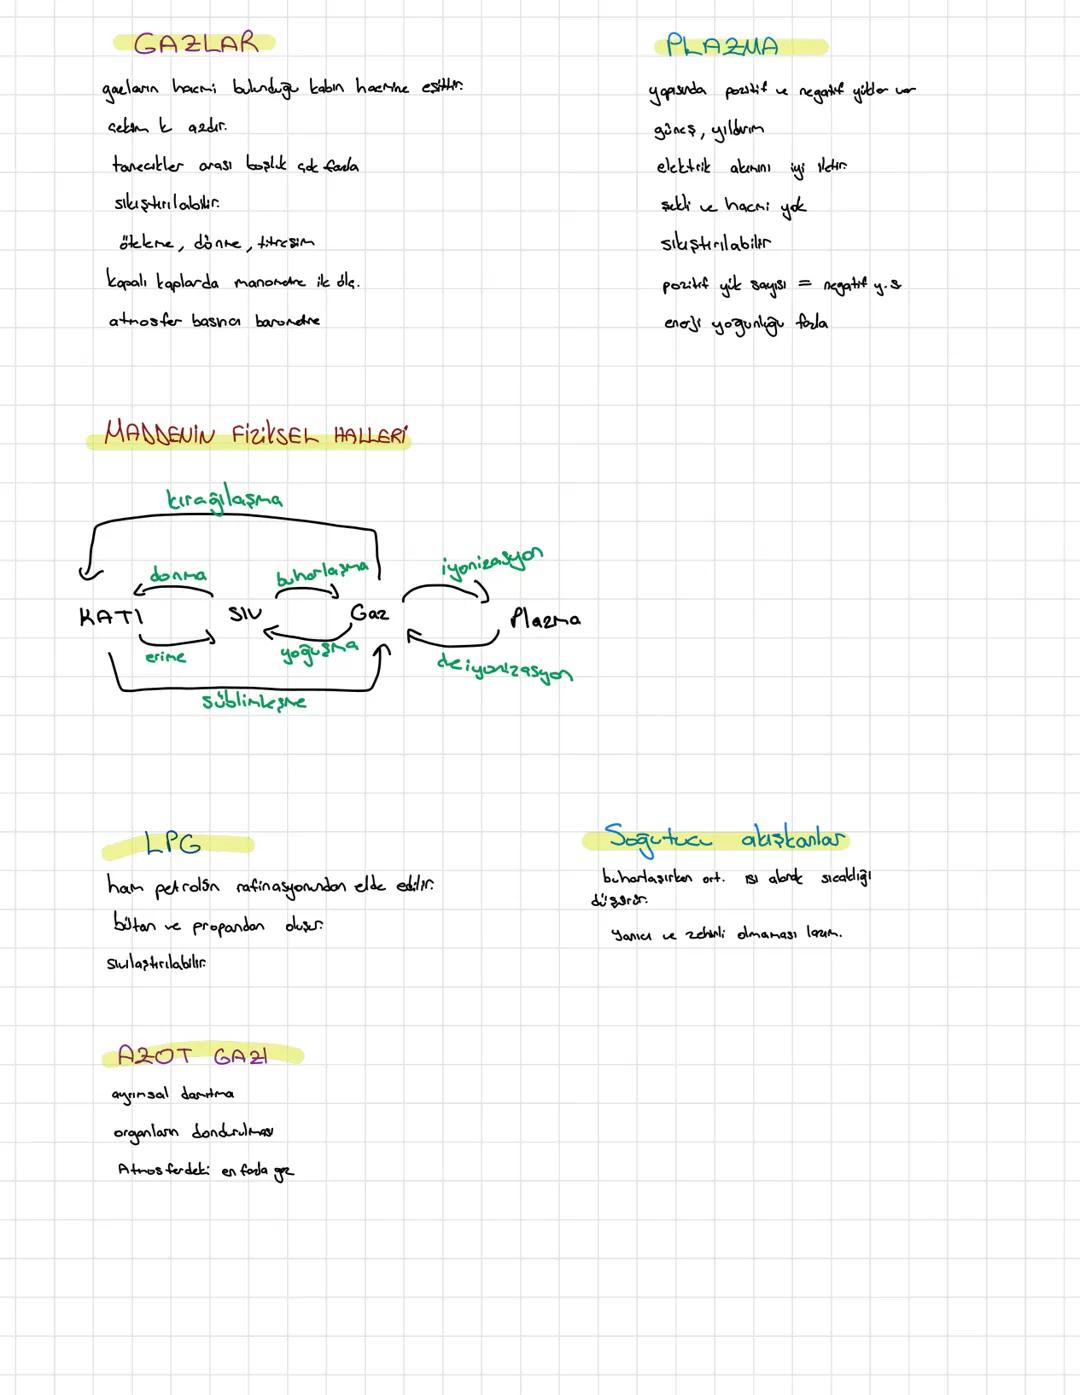 GAZLAR
gazların hacmi bulunduğu kabın hacmine eşittir.
çekim k azdır.
tanecikler arası boşluk çok fazla
sıkıştırılabilir.
öteleme, dönme, titreşim
kapalı kaplarda manometre ile ölç.
atmosfer basıncı barometre
PLAZMA
yapısında pozitif ve negatif yükler var
güneş, yıldırım
elektrik akımını iyi iletir.
şekli ve hacmi yok
sıkıştırılabilir
pozitif yük sayısı = negatif y.s
enerji yoğunluğu fazla
MADDENİN FİZİKSEL HALLERİ
kırağılaşma
donma buharlaşma iyonizasyon
KATI SIVI Gaz Plazma
erime yoğuşma deiyonizasyon
süblimleşme
LPG
ham petrolün rafinasyonundan elde edilir.
bütan ve propandan oluşur.
sıvılaştırılabilir
Soğutucu akışkanlar
buharlaşırken ort. ısı alarak sıcaklığı
düşürür.
Yanıcı ve zehirli olmaması lazım.
AZOT GAZI
ayrımsal damıtma
organların dondurulması
Atmosferdeki en fazla gaz